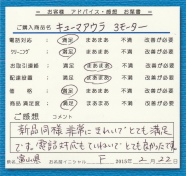 お客様 アドバイス・感想 お葉書
ご購入商品名 キュースアウラ 3モーター
電話対応 満足 まあまあ 不満 改善が必要
クリーニング 満足 まあまあ 不満 改善が必要
お取引連絡 満足 まあまあ 不満 改善が必要
配達設置 満足 まあまあ 不満 改善が必要
価格 満足 まあまあ 不満 改善が必要
商品満足度 満足 まあまあ 不満 改善が必要
ご感想 コメント
新品同様 非常にきれいでとても満足
です。電話対応もていねいでとても良かったです。
富山県 お客様イニシャル F 2015年 2月 22日